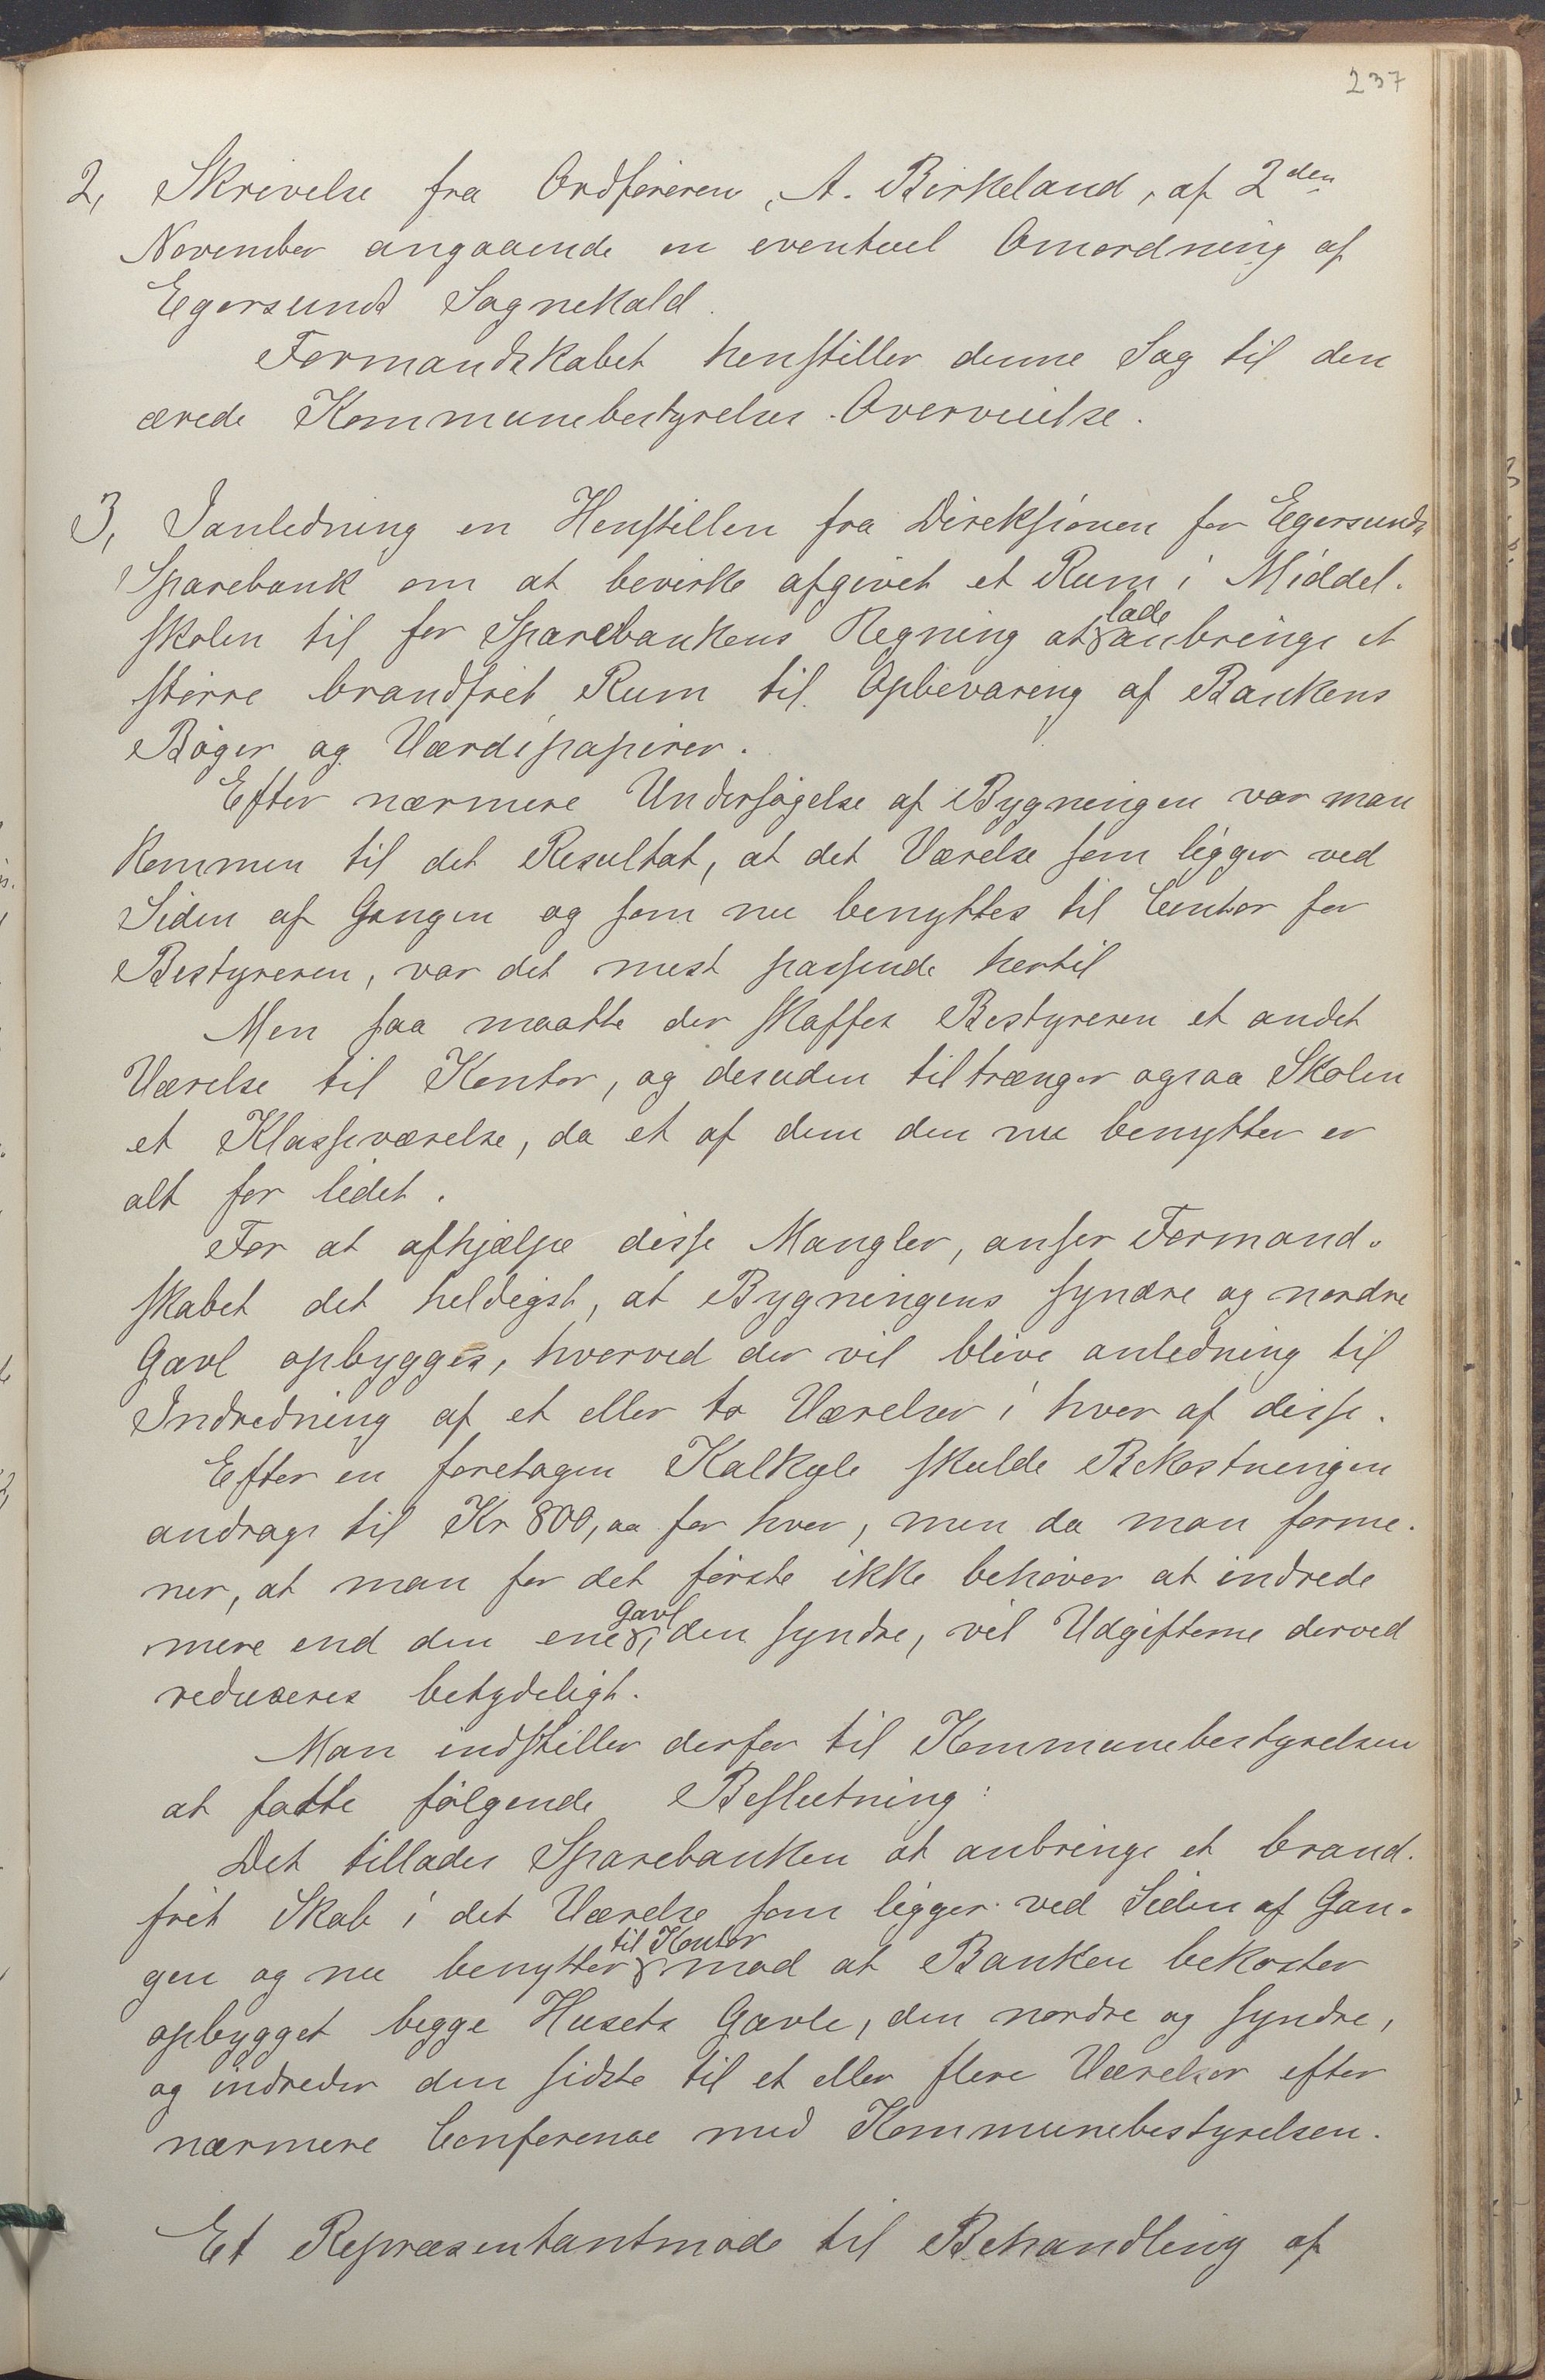 237
2, Skrivelse fra Ordføreren, A. Birkeland, af 2den
November angaaende en eventuel Omordning af
Egersunds Sognekald.
Formandskabet henstiller denne Sag til den
ærede Kommunebestyrelses Overveielse.
3, Ianledning en Henstillen fra Direksionen for Egersunds
Sparebank om at bevirke afgivet et Rum i Middel-
skolen til for Sparebankens Regning at lade anbringe et
större brandfrit Rum til Opbevaring af Bankens
Bøger og Værdipapirer.
Efter nærmere Undersøgelse af Bygningen var man
kommen til det Resultat, at det Værelse som ligger ved
Siden af Gangen og som nu benyttes til Contor for
Bestyreren, var det mest passende hertil
Men saa maatte der skaffes Bestyreren et andet
Værelse til Kontor, og desuden tiltrænger ogsaa Skolen
et Klasseværelse, da et af dem den nu benytter er
alt for lidet.
For at afhjælpe disse Mangler, anser Formand-
skabet det heldigst, at Bygningens syndre og nordre
Gavl opbygges, hvorved der vil blive anledning til
Indredning af et eller to Værelser i hver af disse.
Efter en foretagen Kalkyle skulde Bekostningen
andrage til Kr 800,00 for hver, men da man forme-
ner, at man for det første ikke behøver at indrede
mere end den ene Gavl, den syndre, vil Udgifterne derved
reduseres betydeligt.
Man indstiller derfor til Kommunebestyrelsen
at fatte følgende Beslutning:
Det tillades Sparebanken at anbringe et brand-
frit Skab i det Værelse som ligger ved Siden af Gan-
gen og nu benyttes til Kontor mod at Banken bekoster
opbygget begge Husets Gavle, den nordre og syndre,
og indreder den sidste til et eller flere Værelser efter
nærmere Conference med Kommunebestyrelsen.
Et Repræsentantmøde til Behandling af